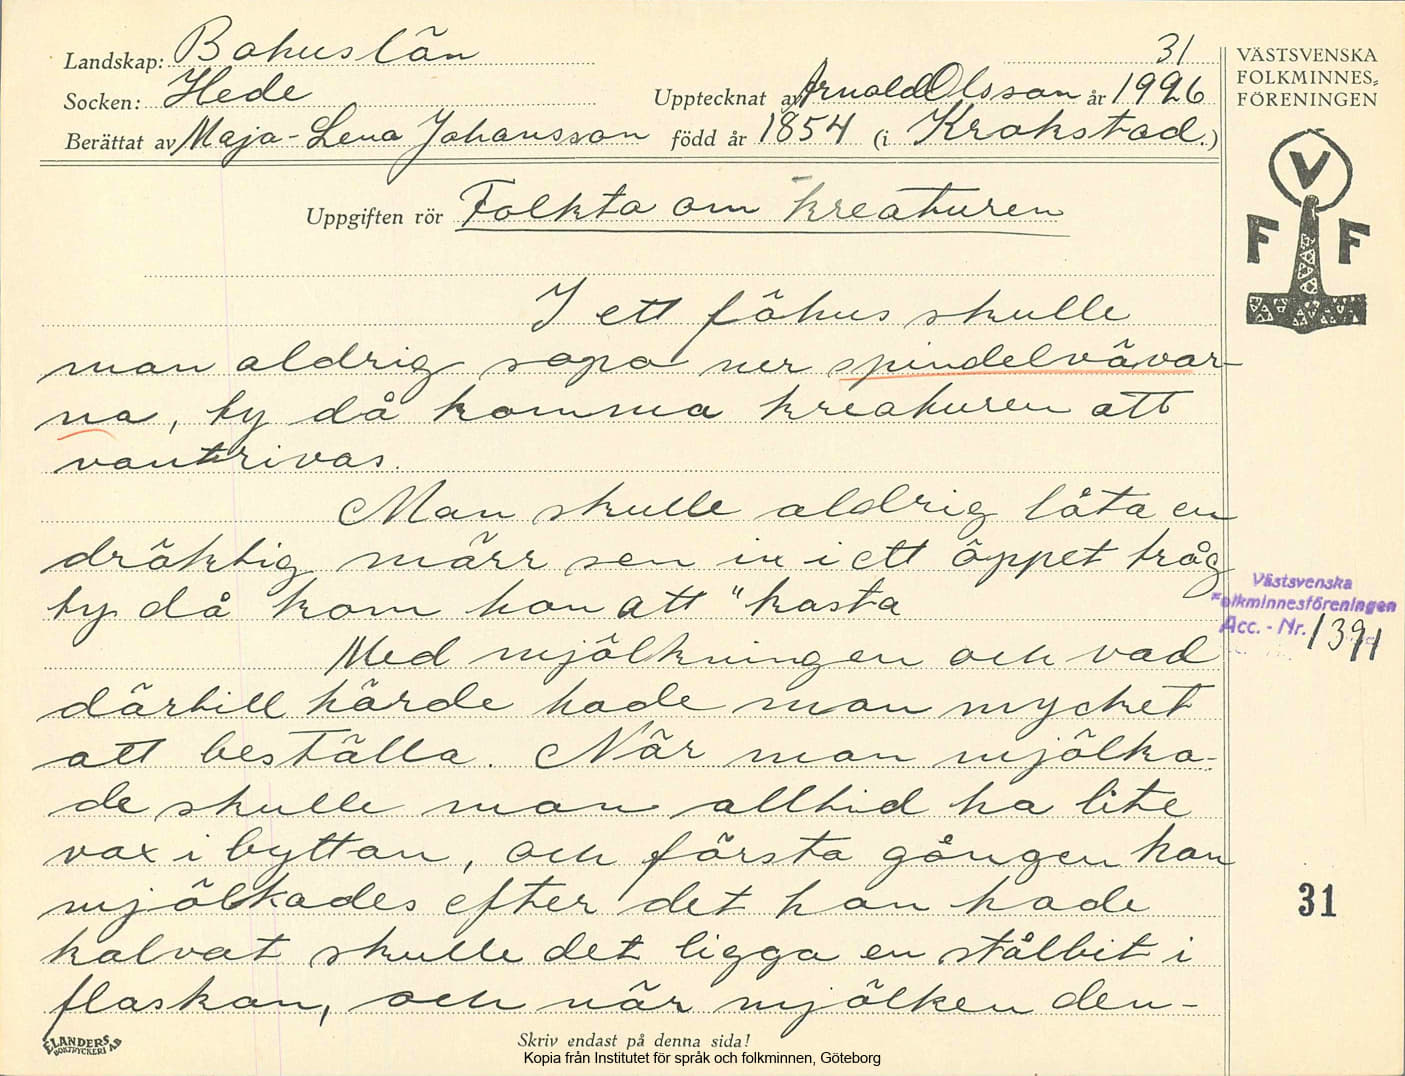 Landskap: Bohuslän
31
Socken: Hede
Upptecknat av Arnold Olsson år 1926
Berättat av Maja-Lena Johansson född år 1854 (i Krokstad.)
VÄSTSVENSKA
FOLKMINNES-
FÖRENINGEN
V
F F
Uppgiften rör Folkto om kreaturen
I ett föhus skulle
man aldrig sopa ner spindelvävar-
na, ty då komma kreaturen att
vantrivas.
Man skulle aldrig låta en
dräktig märr sen in i ett öppet tråg
ty då kom hon att "kasta
Med mjölkningen och vad
därtill hörde hade man mycket
att beställa. När man mjölka-
de skulle man alltid ha lite
vax i byttan, och första gången kon
mjölkades efter det hon hade
kalvat skulle det ligga en stålbit i
flaskan, och när mjölken den-
Västsvenska
Folkminnesföreningen
Acc. - Nr. 1391
31
ELANDERS
BOKTRYCKERI AB
Skriv endast på denna sida!
Kopia från Institutet för språk och folkminnen, Göteborg